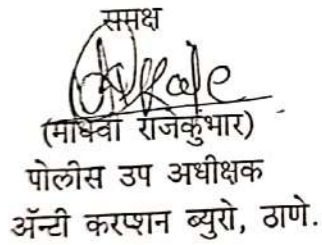 समक्ष
(माधवी राजेकुंभार)
पोलीस उप अधीक्षक
ॲन्टी करप्शन ब्युरो, ठाणे.